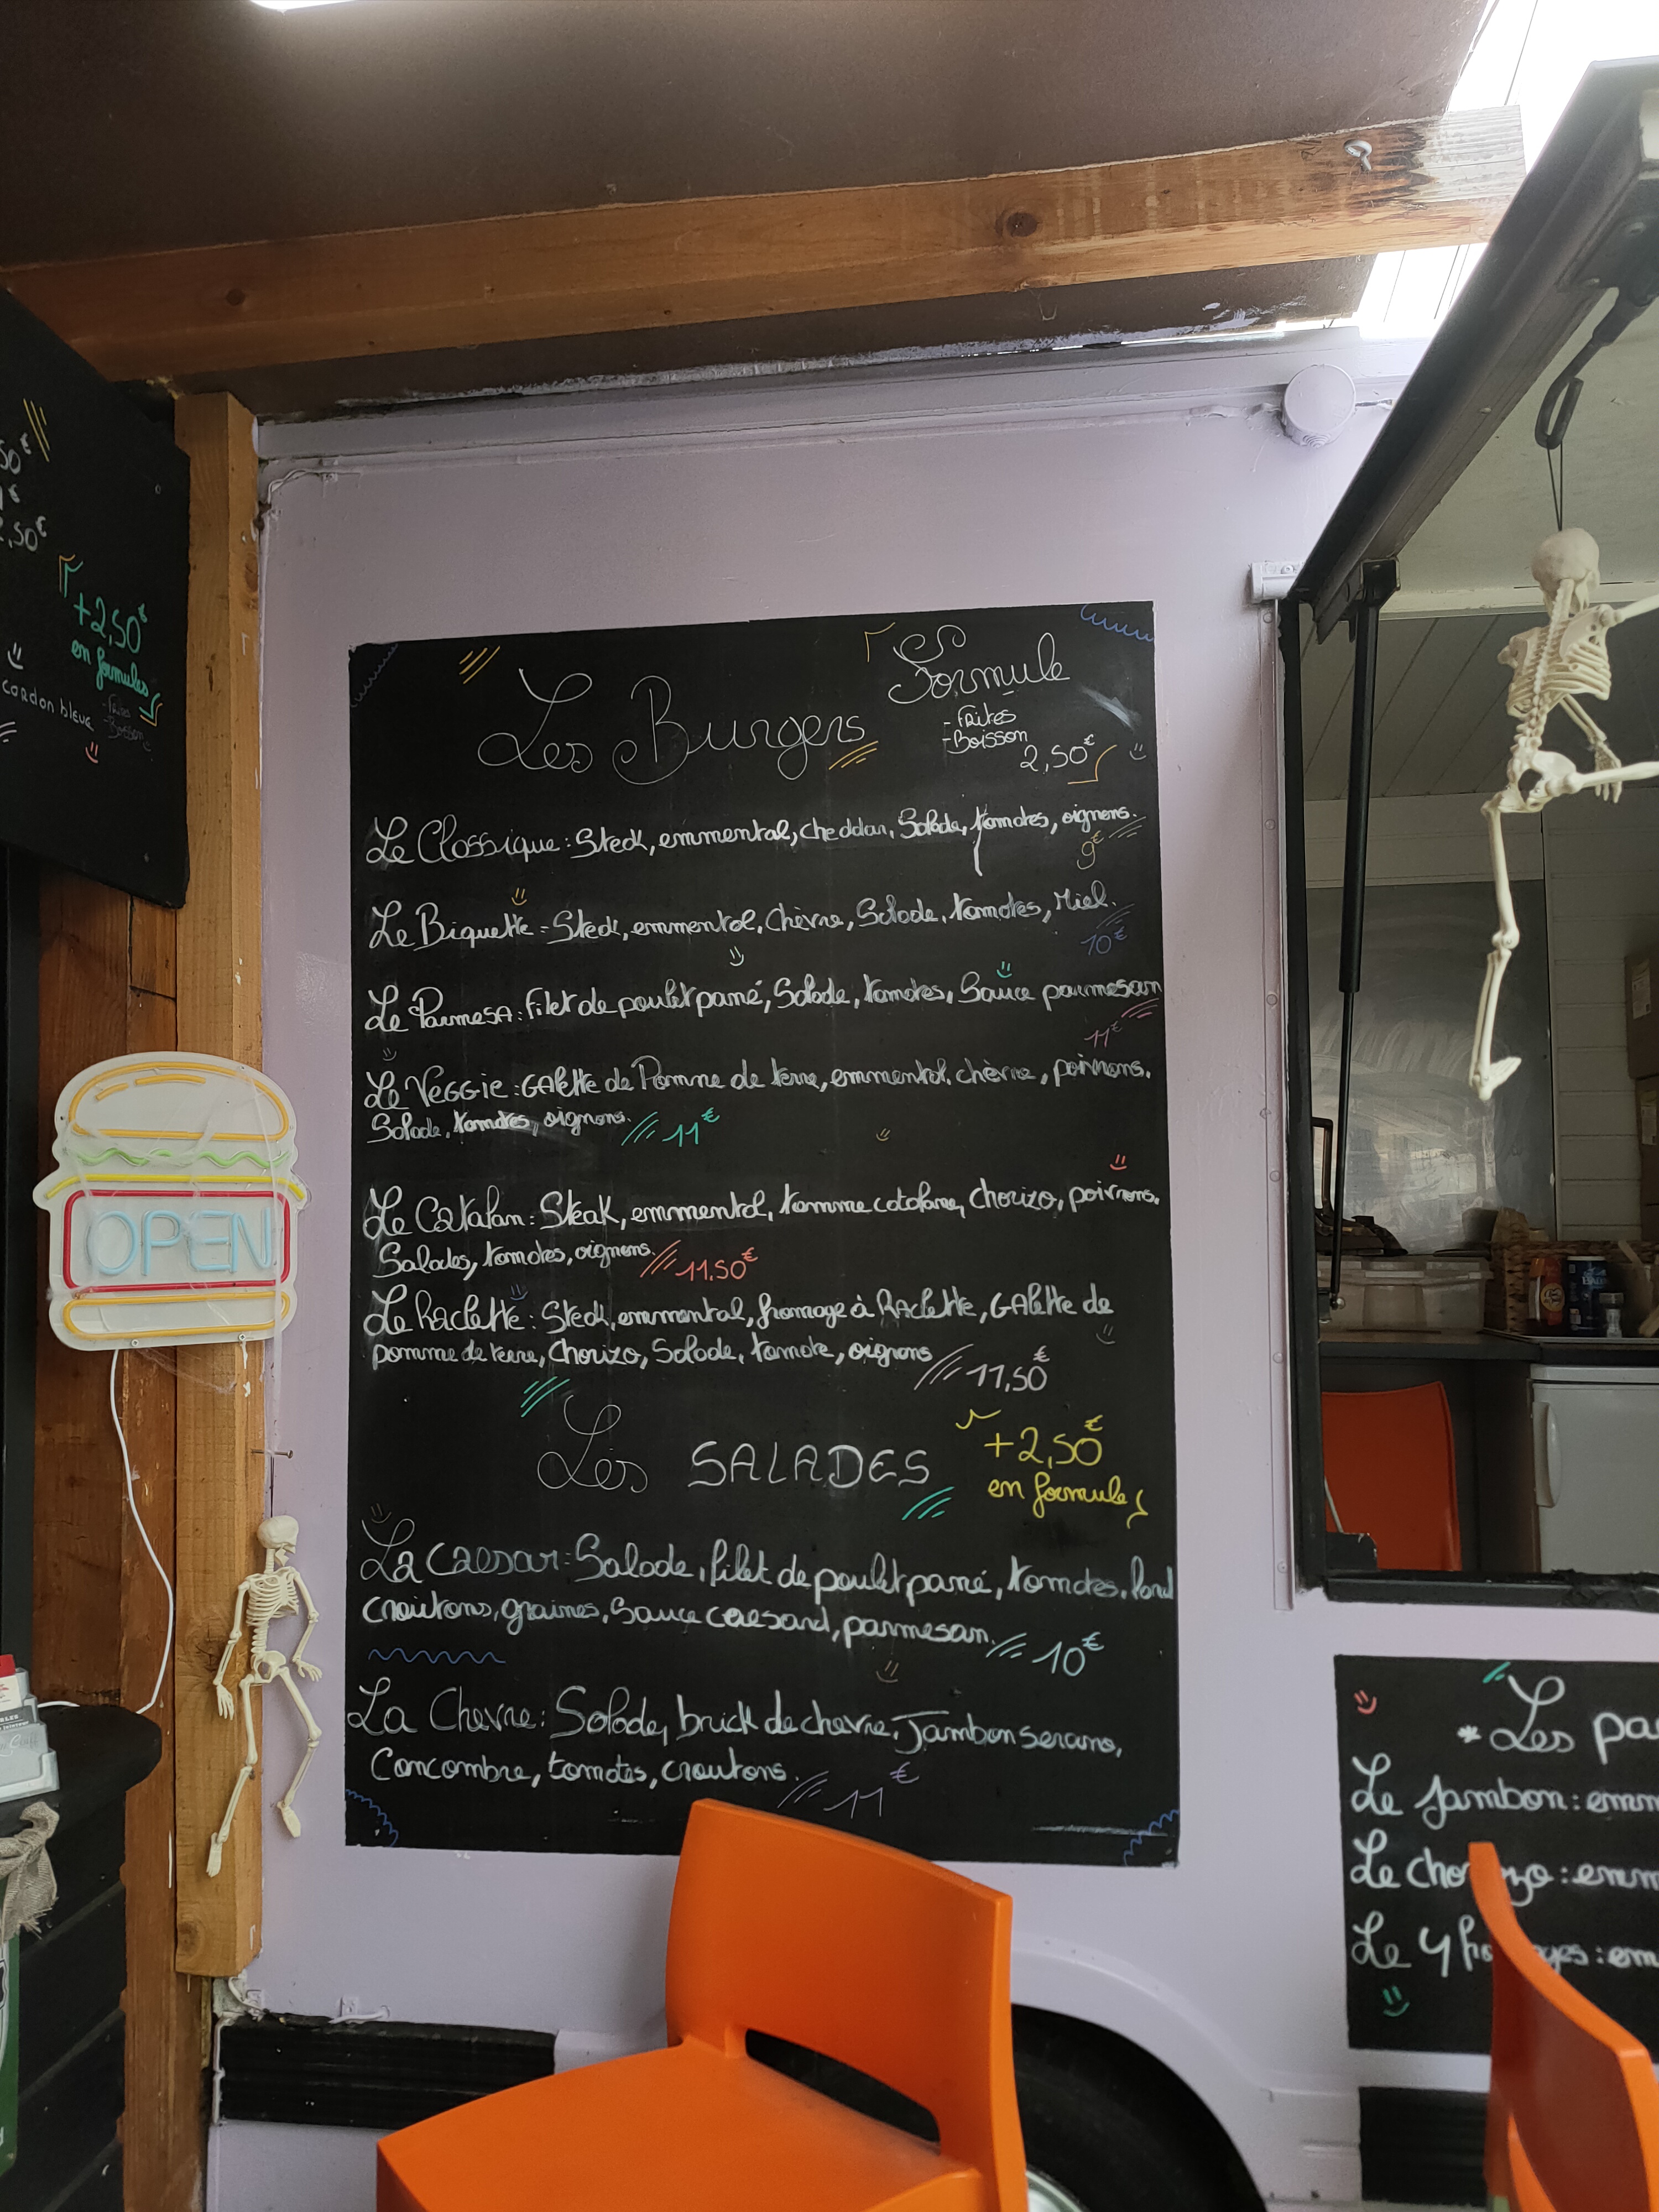 50€
1€
2,50€
+2,50€
en formules
cordon bleue
- Frites
- Boisson
OPEN
Les Burgers
Formule
- Frites
- Boisson
2,50€
Le Classique : Steak, emmental, cheddar, Salade, tomates, oignons.
9€
Le Biquette = Steak, emmental, Chèvre, Salade, tomates, Miel.
10€
Le ParmesA : filet de poulet pané, Salade, tomates, Sauce parmesan
11€
Le Veggie : GAlette de Pomme de terre, emmental, chèvre, poivrons.
Salade, tomates, oignons. 11€
Le Catalan : Steak, emmental, tomme catalane, Chorizo, poivrons.
Salades, tomates, oignons. 11.50€
Le Raclette : Steak, emmental, fromage à RAclette, GAlette de
pomme de terre, Chorizo, Salade, tomate, oignons 11,50€
Les SALADES
+2,50€
en formules
La Caesar : Salade, filet de poulet pané, tomates, lard
croutons, graines, Sauce caesard, parmesan. 10€
La Chevre : Salade, brick de chevre, Jambon serano,
Concombre, tomates, croutons. 11€
* Les pa
Le Jambon : emm
Le Chorizo : emm
Le 4 fromages : em